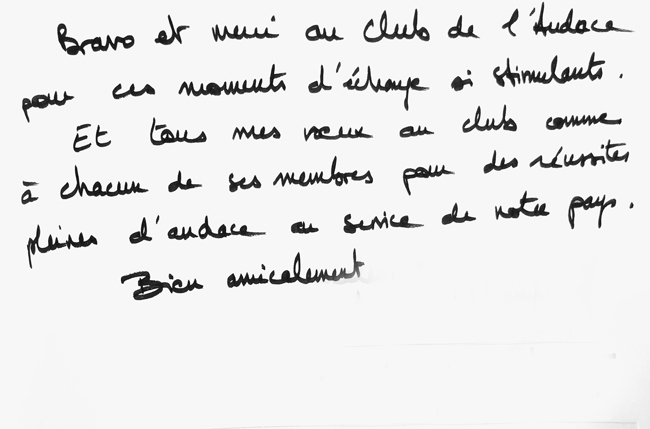 Bravo et merci au club de l'Audace
pour ces moments d'échange si stimulants.
Et tous mes vœux au club comme
à chacun de ses membres pour des réussites
pleines d'audace au service de notre pays.
Bien amicalement